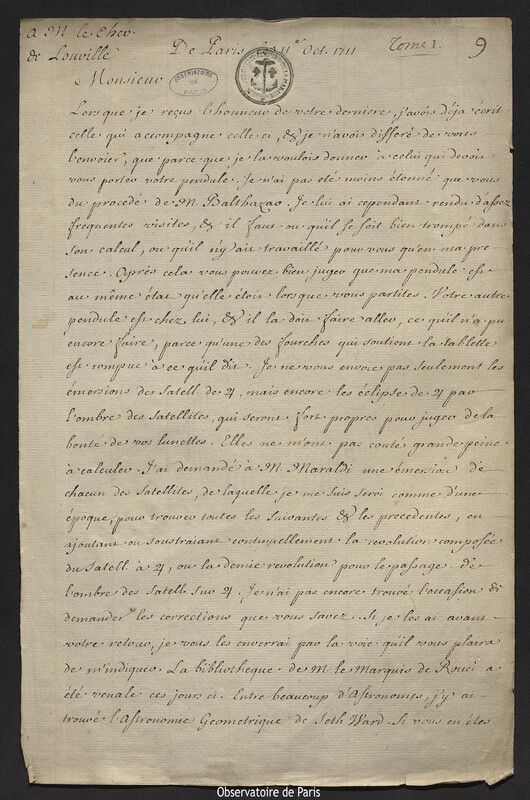 a M le Chev.
de Louville
De Paris ce 11e Oct. 1711
Tome I.
9
Monsieur
OBSERVATOIRE
DE
PARIS
Lorsque je reçus l'honneur de votre derniere, j'avois déja écrit
celle qui accompagne celle ci, & je n'avois differé de vous
l'envoier, que parce que je la voulois donner à celui qui devoit
vous porter votre pendule. Je n'ai pas eté moins étonné que vous
du procédé de M. Balthazar. Je lui ai cependant rendu d'assez
frequentes visites, & il faut ou qu'il se soit bien trompé dans
son calcul, ou qu'il n'y ait travaillé pour vous qu'en ma pre
sence. Après cela vous pouvez bien juger que ma pendule est
au même état qu'elle étoit lorsque vous partites. Votre autre
pendule est chez lui, & il la doit faire aller, ce qu'il n'a pu
encore faire, parce qu'une des fourches qui soutient la tablette
est rompue à ce qu'il dit. Je ne vous envoie pas seulement les
émersions des Satell. de ♃, mais encore les éclipse de ♃ par
l'ombre des Satellites, qui seront fort propres pour juger de la
bonté de vos lunettes. Elles ne m'ont pas couté grande peine
à calculer. J'ai demandé à M. Maraldi une émersion de
chacun des Satellites, de laquelle je me suis servi comme d'une
époque, pour trouver toutes les suivantes & les precedentes, en
ajoutant ou soustraiant continuellement la revolution composée
du Satell. à ♃, ou la demie revolution pour le passage de
l'ombre des Satell. sur ♃. Je n'ai pas encore trouvé l'occasion de
demander les corrections que vous savez. Si je les ai avant
votre retour, je vous les enverrai par la voie qu'il vous plaira
de m'indiquer. La bibliotheque de M. le Marquis de Rouci a
été venale ces jours ci. Entre beaucoup d'Astronomes, j'y ai
trouvé l'Astronomie Geometrique de Seth Ward. Si vous en étes
Observatoire de Paris